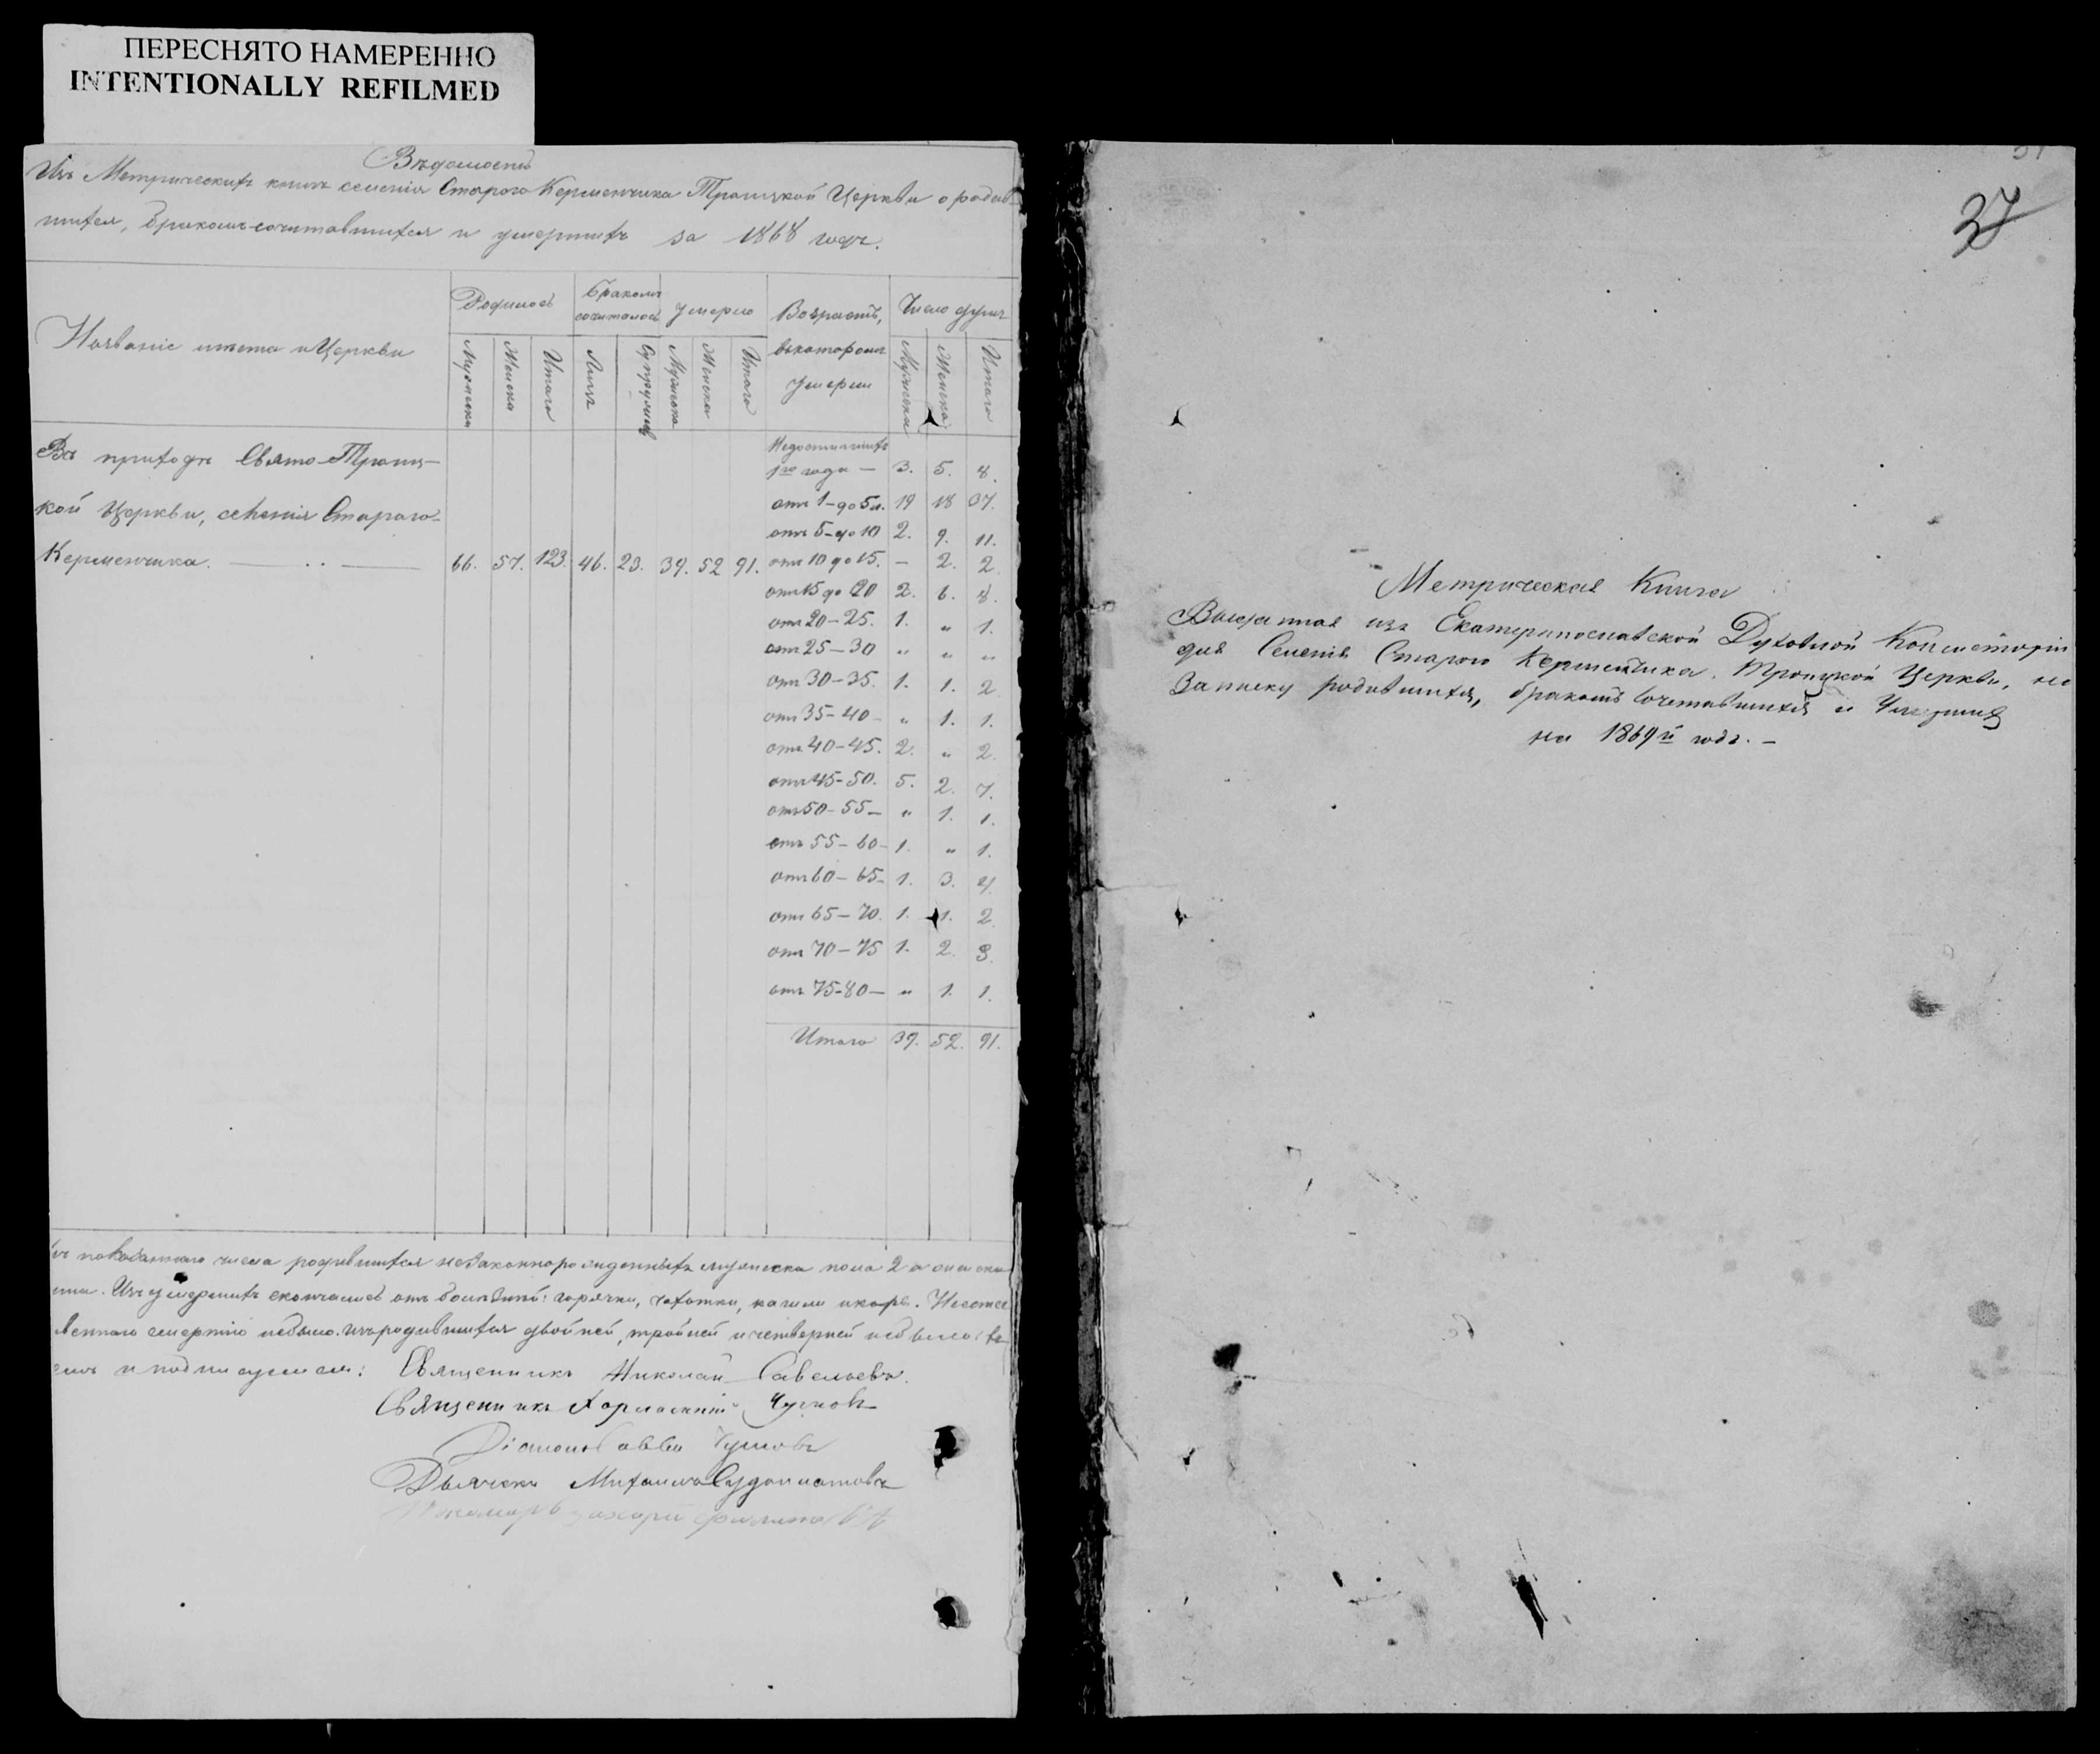 ПЕРЕСНЯТО НАМЕРЕННО
INTENTIONALLY REFILMED
Вѣдомость
Изъ Метрическихъ книгъ селенія Старого Керменчика Троицкой Церкви о родив-
шихся, бракомъ сочитавшихся и умершихъ за 1868 годъ.
Названіе мѣста и Церкви
Родилось
Бракомъ сочиталось
Умерло
Возрастъ, вкоторомъ умерли
Число душъ
Мужеска
Женска
Итого
Лицъ
Супружествъ
Мужеска
Женска
Итого
Мужеска
Женска
Итого
Въ приходѣ Свято-Троиц-
кой Церкви, селенія Старого-
Керменчика. 66. 57. 123. 46. 23. 39. 52 91.
Недостигшихъ
1го года — 3. 5. 8.
отъ 1-до 5л. 19 18 37.
отъ 5-до 10 2. 9. 11.
отъ 10 до 15. — 2. 2
отъ 15 до 20 2. 6. 8.
отъ 20-25. 1. " 1.
отъ 25-30 " " "
отъ 30-35. 1. 1. 2
отъ 35-40- " 1. 1.
отъ 40-45. 2. " 2.
отъ 45-50. 5. 2. 7.
отъ 50-55- " 1. 1.
отъ 55-60- 1. " 1.
отъ 60-65- 1. 3. 4.
отъ 65-70. 1. 1. 2.
отъ 70-75 1. 2. 3.
отъ 75-80- " 1. 1.
Итого 39. 52. 91.
показаннаго числа родившихся незаконнорожденныхъ мужеска пола 2 а
Изъ умершихъ скончались отъ болѣзней: горячки, чахотки, кашля и корь.
смертію небыло. изъ родившихся двойней, тройней и четверней небыло
и подписуемся: Священникъ Николай Савельевъ.
Священникъ Харлампій Чумовъ
Діаконъ Савва Чумовъ
Дьячекъ Михаилъ
Пономарь Захарій
37
Метрическая Книга
Выданная изъ Екатеринославской Духовной Консисторіи
для Селенія Старого Керменчика. Троицкой Церкви, на
Записку родившихся, бракомъ сочетавшихся и Умершихъ
на 1869й годъ. —